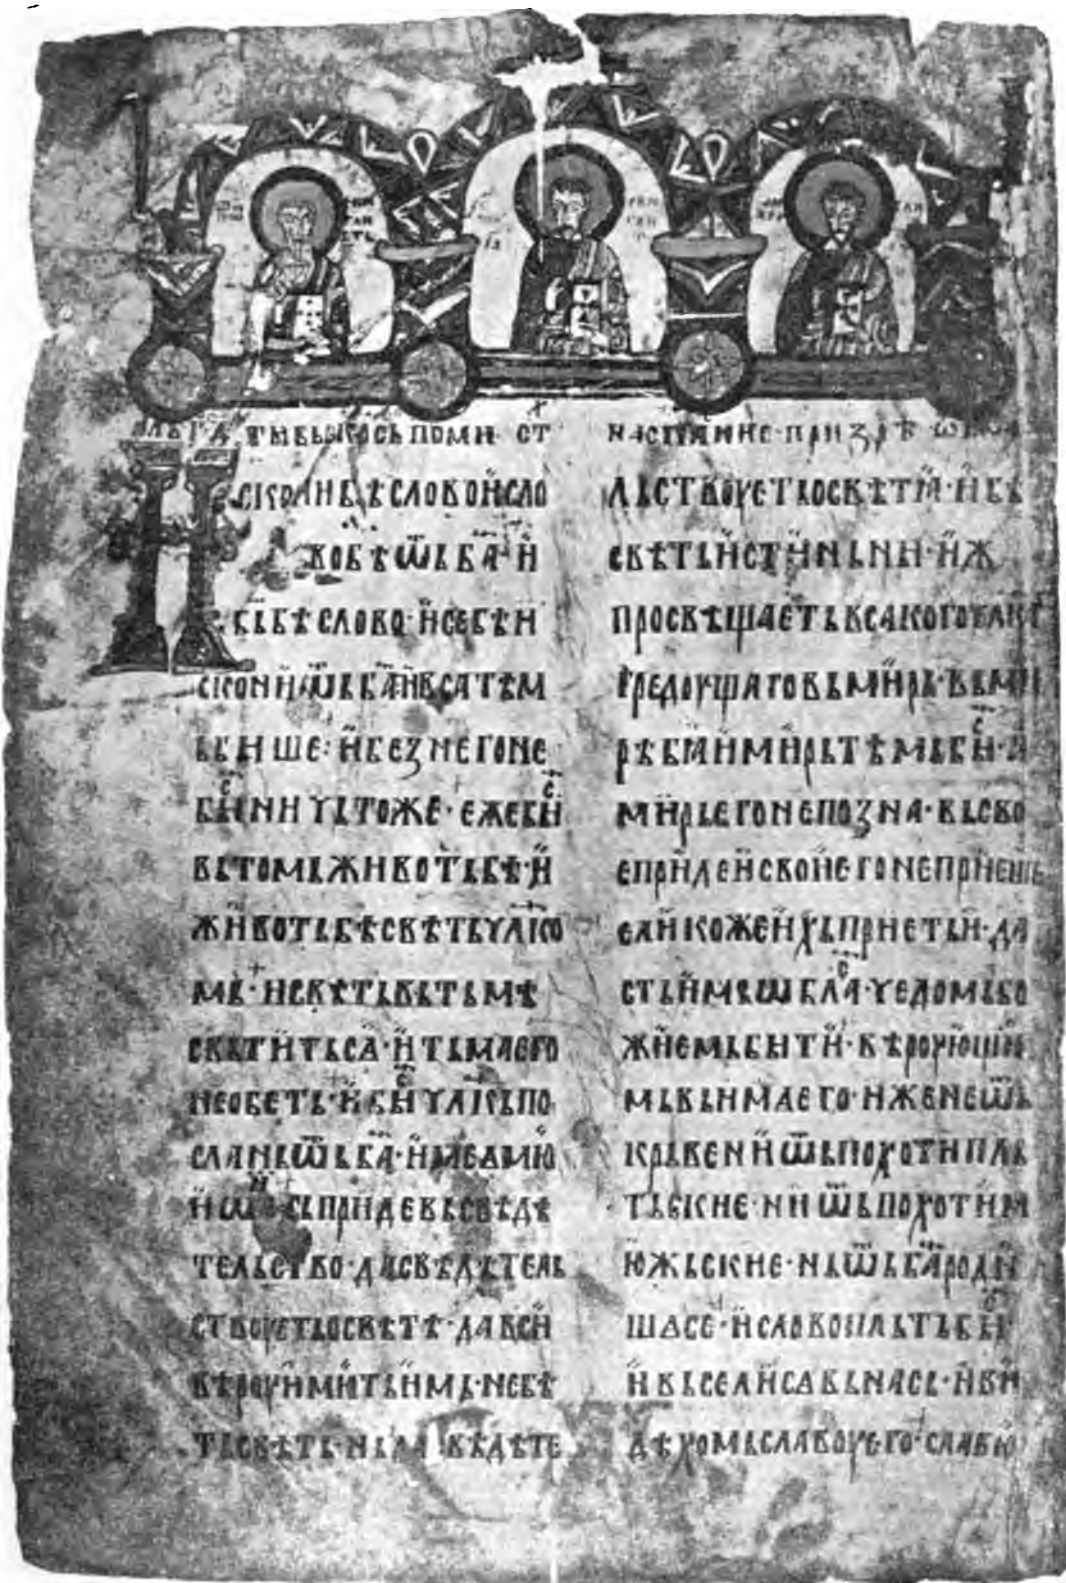 сконибѣсловоⷩ҇исло
вобѣѿьба҃·и
бь҃бѣслово·исебѣи
скониѿьба҃·ивсатѣм
ьбише:ибезнего не
биⷭ҇ничьтоже·ежебиⷭ҇
вьтомьживотьбѣ·и
животьбѣсвѣтьчл҃ко
мь·исвѣтьвьтьмѣ
свьтитьса·итьмаего
необеть·ибиⷭ҇чл҃кьпо
сланьѿьба҃·имеѡмю
иѡⷩ҇·сьпридевьсвѣдѣ
тельство·дасвѣдѣтель
ствоуетьосвѣтѣ·давси
вѣроуимитьимь·небѣ
тьсвѣть·ньда·вѣдѣте
льствоуетьосвѣти·ибѣ
свѣтьистиньни·иж
просвѣщаетьвсакогочл҃к
гредоущаговьмирь·вьми
рѣбѣ·имирьтѣмьбиⷭ҇·и
мирьегонепозна·вьсво
еприде·исвоиегонеприеше
еликожеихьприеть·и·да
стьимьѡблаⷭ҇·чедомьбо
жиемьбыти·вѣроующи
мьвьимаего·иженеѿь
крьвени·ѿьпохотипль
тьские·ниѿьпохотим
южьские·ньѿьба҃роди
шасе·исловопльтьбиⷭ҇
ивьселисавьнась·иви
дѣхомьславоуего·славю